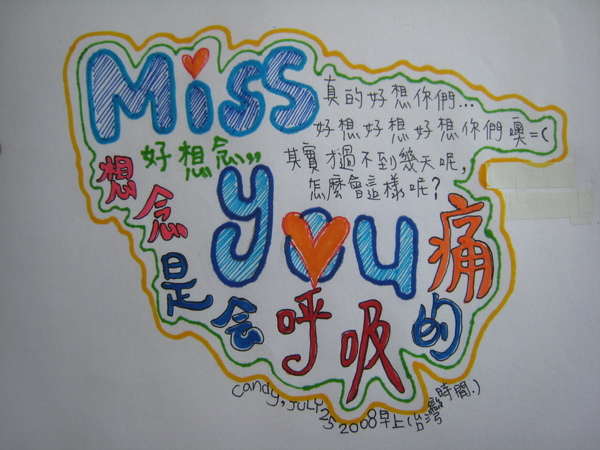 Miss
真的好想你們...
好想好想好想你們噢=(
好想念,,
其實才過不到幾天呢,
怎麼會這樣呢?
you
想念是會呼吸的痛
Candy, JULY 25 2008 早上(台灣時間.)